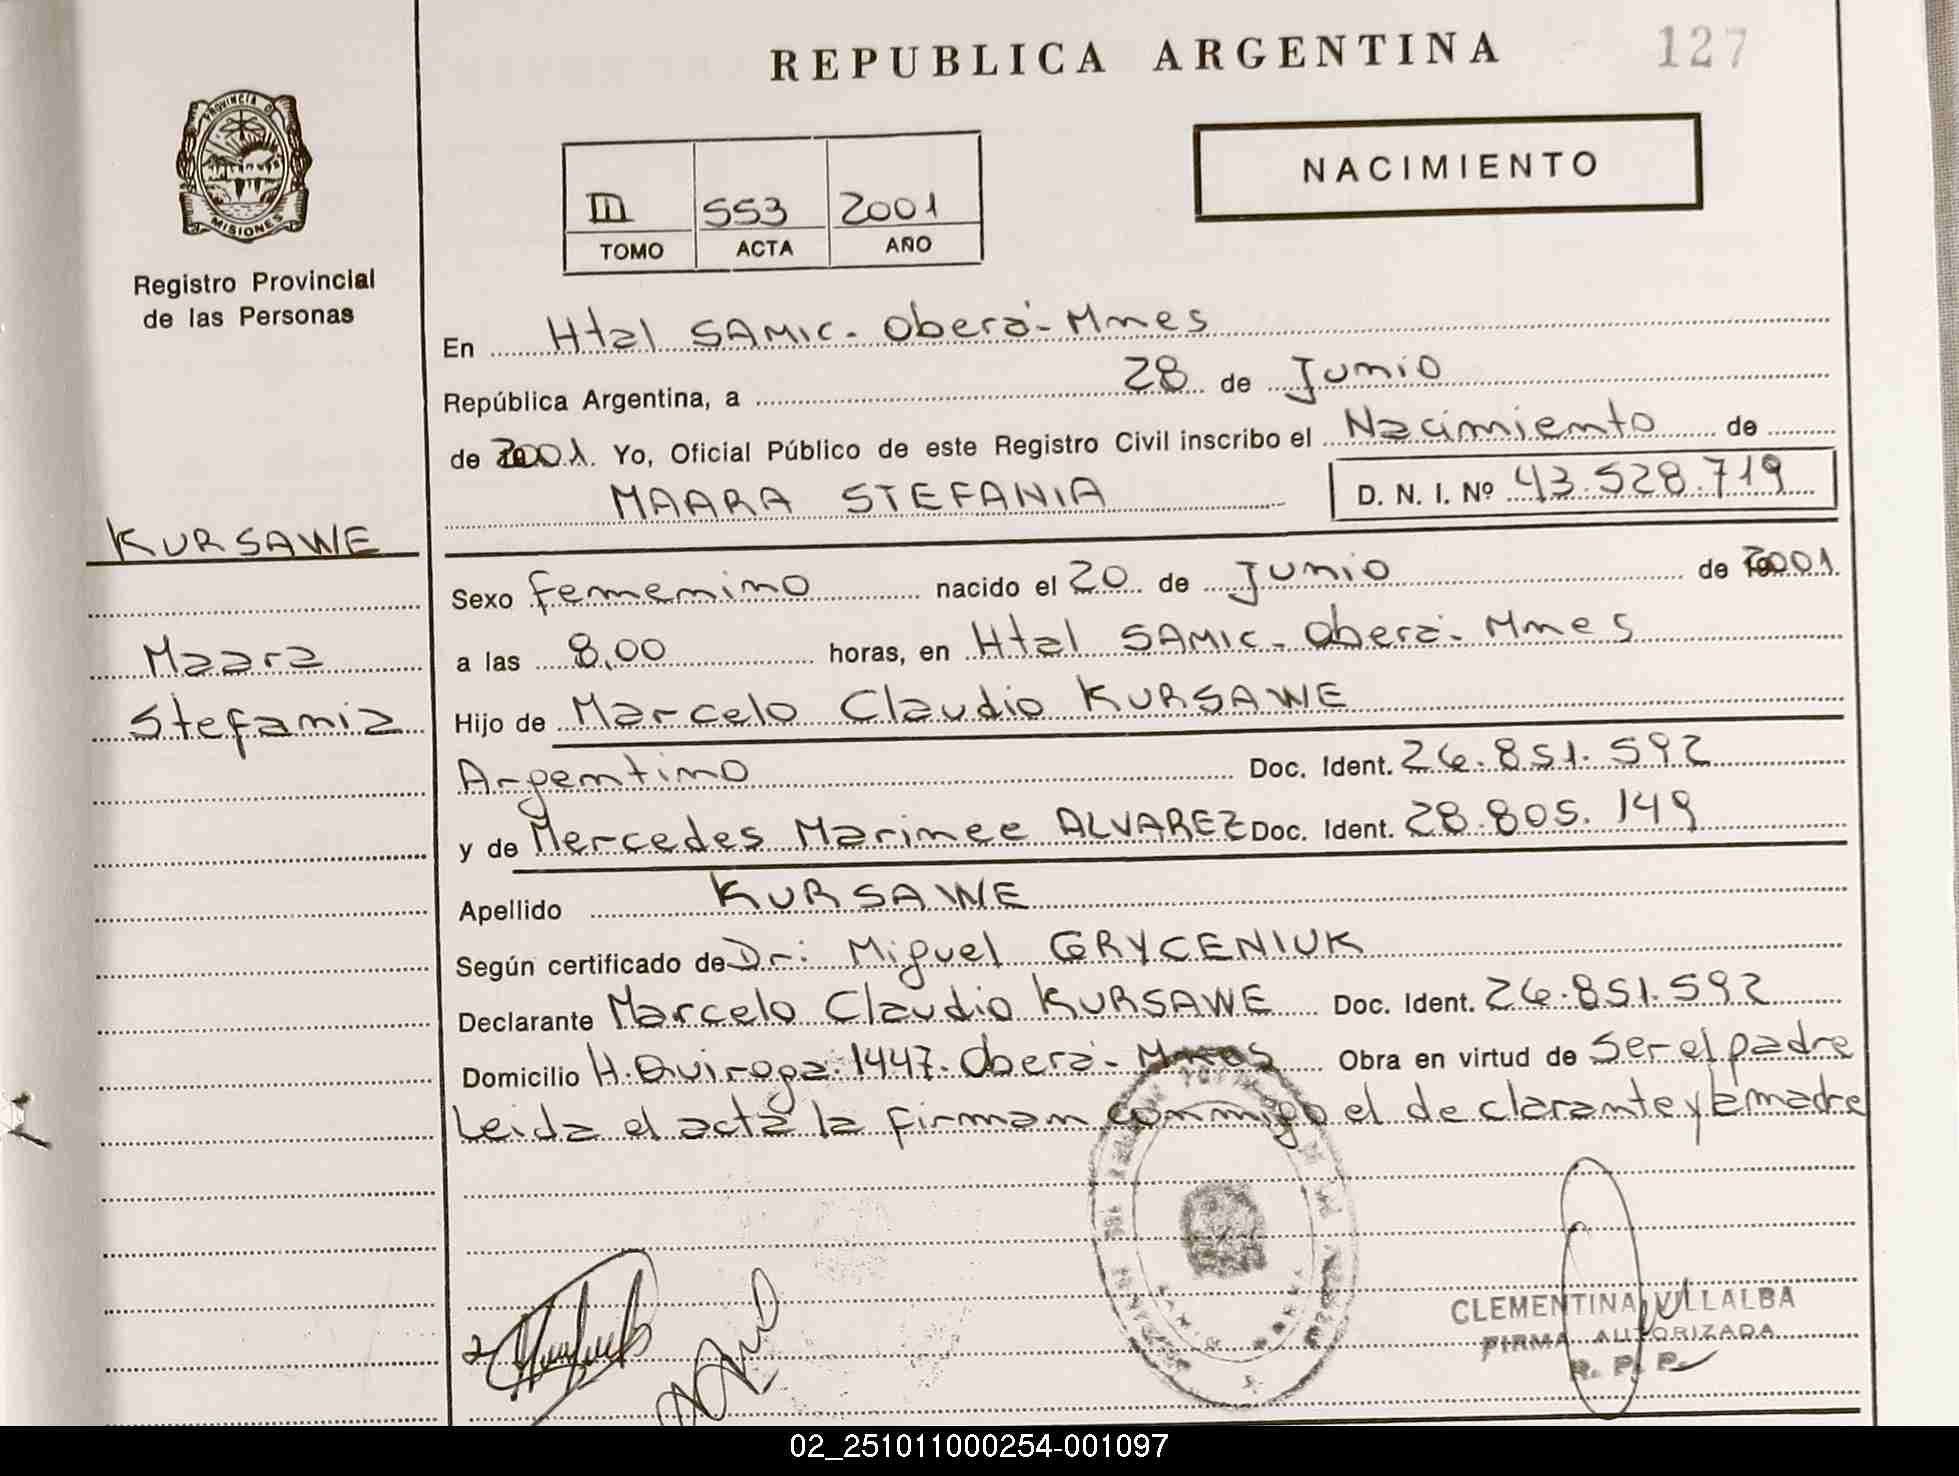 REPUBLICA ARGENTINA
127
PROVINCIA DE
MISIONES
Registro Provincial
de las Personas
III 553 2001
TOMO ACTA AÑO
NACIMIENTO
En Htal SAMIC - Oberá - Mnes
República Argentina, a 28 de Junio
de 2001. Yo, Oficial Público de este Registro Civil inscribo el Nacimiento de
MAARA STEFANIA D. N. I. Nº 43.528.719
KURSAWE
Maara
Stefania
Sexo femenino nacido el 20 de Junio de 2001.
a las 8,00 horas, en Htal SAMIC - Oberá - Mnes
Hijo de Marcelo Claudio KURSAWE
Argentino Doc. Ident. 26.851.592
y de Mercedes Marinee ALVAREZ Doc. Ident. 28.805.149
Apellido KURSAWE
Según certificado de Dr: Miguel GRYCENIUK
Declarante Marcelo Claudio KURSAWE Doc. Ident. 26.851.592
Domicilio H. Quiroga 1447 - Oberá - Mnes Obra en virtud de ser el padre
Leida el acta la firman conmigo el declarante y la madre
CLEMENTINA VILLALBA
FIRMA AUTORIZADA
R. P. P.
02_251011000254-001097